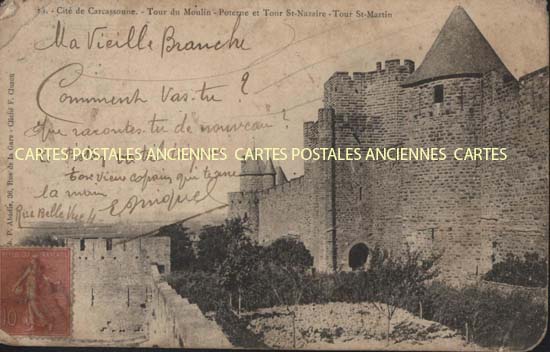 14. - Cité de Carcassonne. - Tour du Moulin - Poterne et Tour St-Nazaire - Tour St-Martin
Ma Vieille Branche
Comment Vas-tu ?
que racontes-tu de nouveau ?
CARTES POSTALES ANCIENNES CARTES POSTALES ANCIENNES CARTES
ton vieux copain qui te serre
la main
Rue Belle Vue 4
P. Abadie, 26, Rue de la Gare - Cliché F. Clucau
10